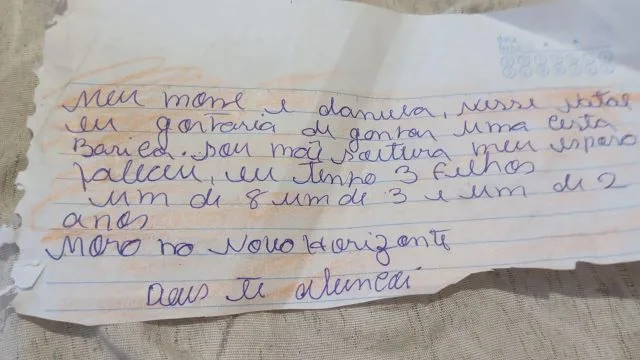 Meu nome e daniela, nesse natal
eu gostaria de ganhar uma cesta
Basica. sou mãe solteira meu esposo
faleceu, eu tenho 3 filhos
um de 8 um de 3 e um de 2
anos
Moro no Novo Horizonte
Deus te